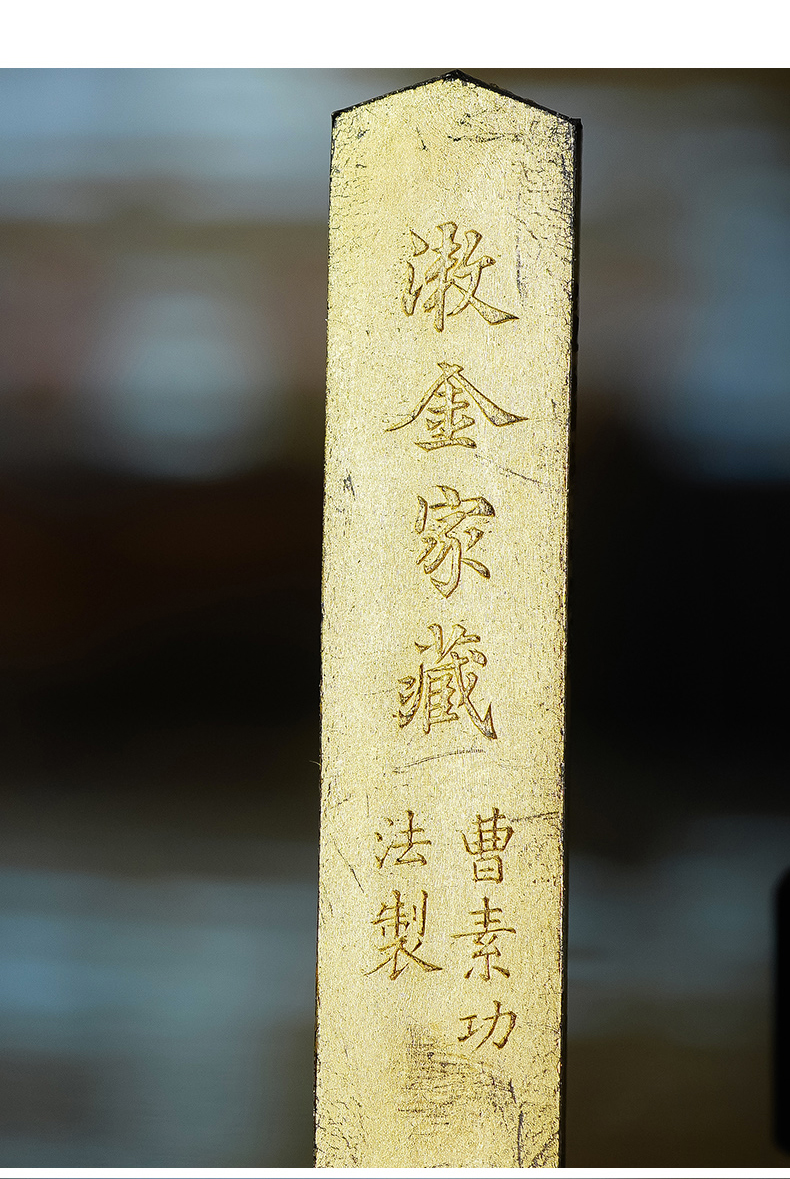 潄金家藏
曹素功
法製